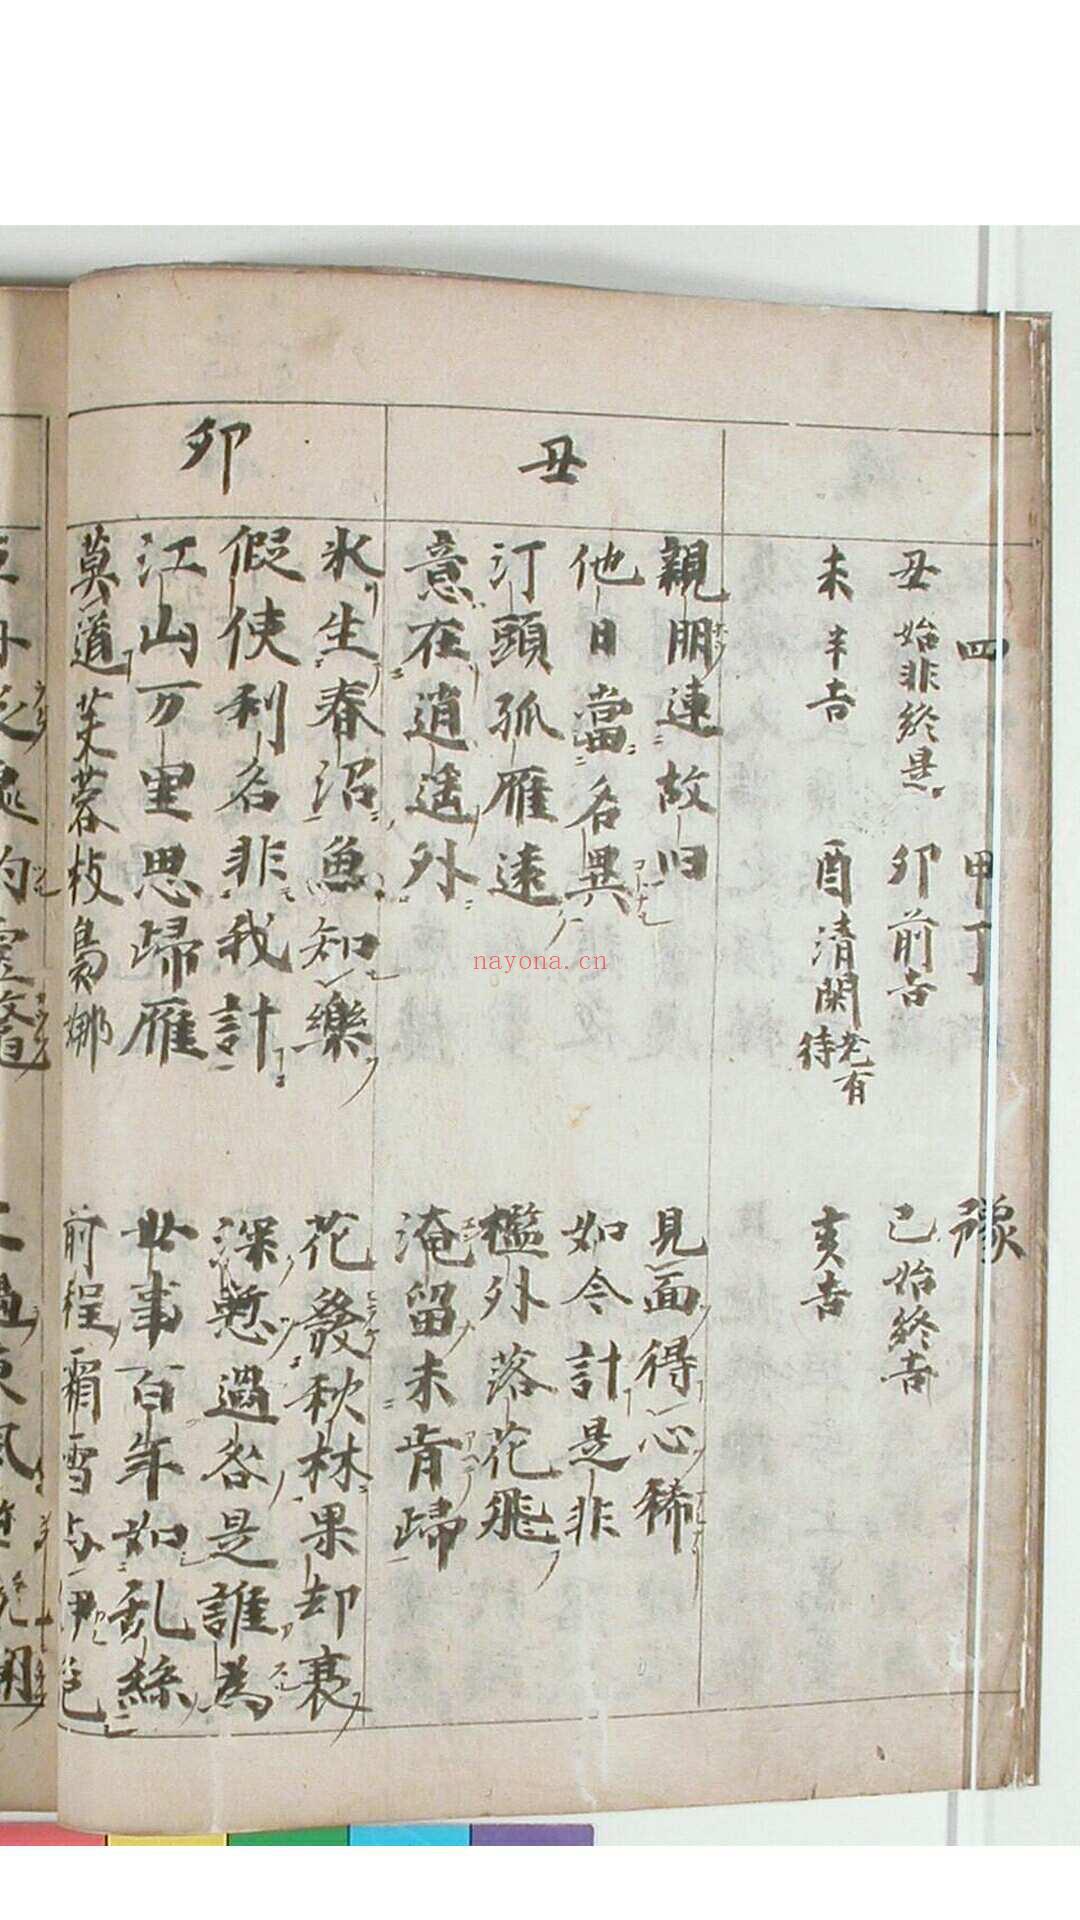 四 甲丁 豫
丑 始非終是 卯 前吉 已 始終吉
未 半吉 酉 清閑 老有待 亥 吉
丑
親朋連故归 見面得心稀
他日當名異 如今計是非
汀頭孤雁遠 檻外落花飛
意在逍遥外 淹留未肯歸
卯
氷生春沼魚知樂 花發秋林果却衰
假使利名非我計 深慙過咎是誰為
江山万里思歸雁 世事百年如乱絲
莫道芙蓉枝裊娜 前程霜雪
nayona.cn